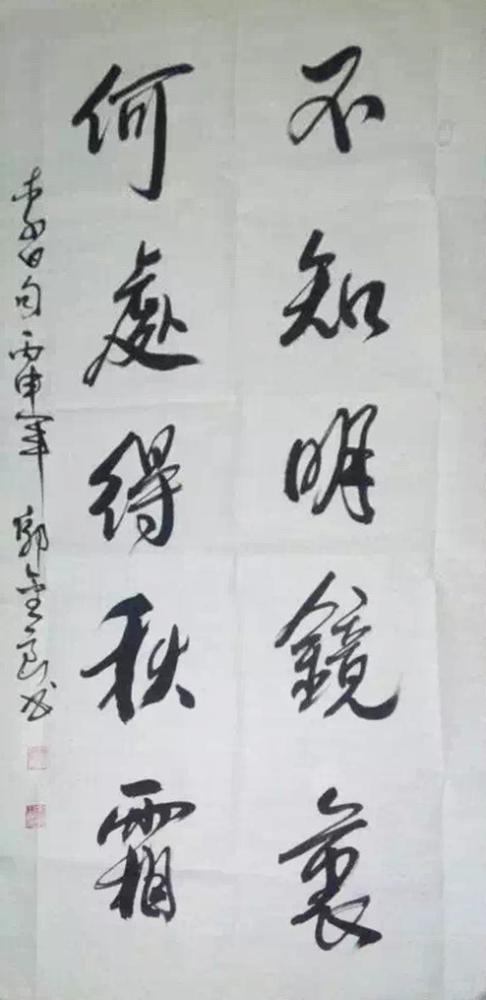 不知明鏡裏
何處得秋霜
李白句丙申年郭金良书